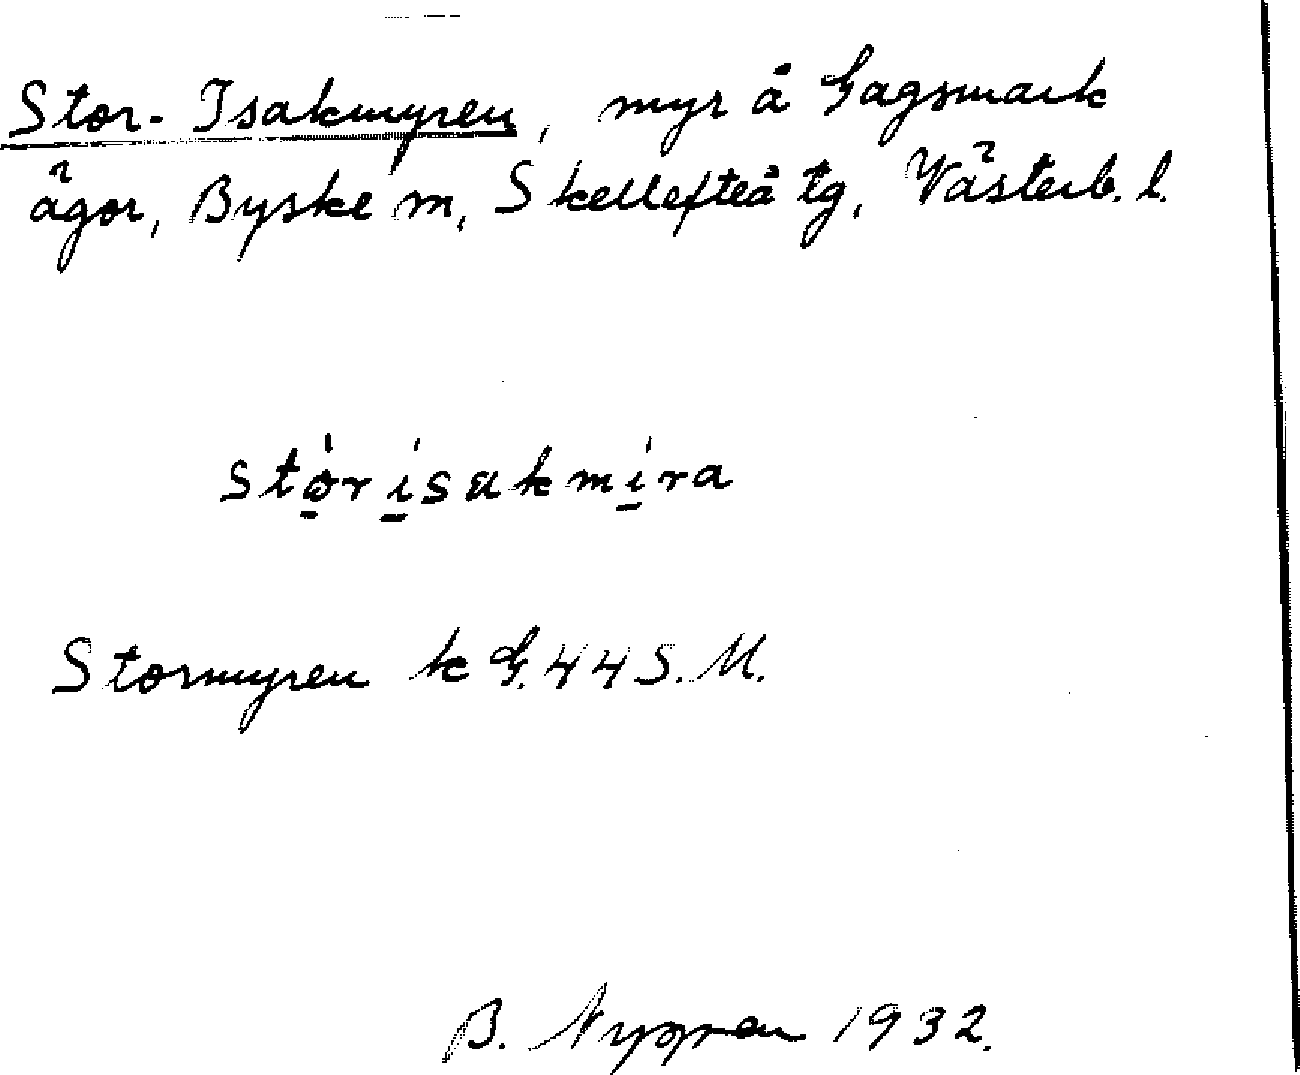 Stor-Isakmyren, myr å Gagsmark
ägor, Byske sn, Skellefteå tg, Västerb. l.
stòrísakmíra
Stormyren k G. 44 S. M.
B. 1932.